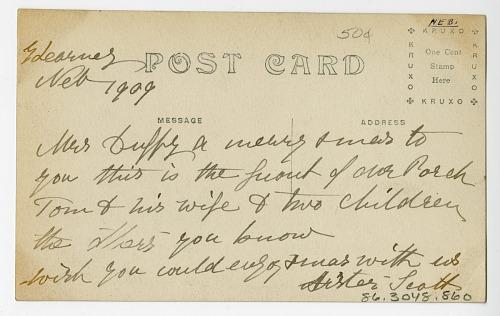 NEB.
50¢
Kearney
Neb 1909
POST CARD
KRUXO
KRUXO
One Cent
Stamp
Here
KRUXO
KRUXO
MESSAGE
ADDRESS
Mrs Duffy a merry xmas to
you this is the frount of our Porch
Tom & his wife & two children
the others you know
wish you could enjoy xmas with us
Sister Scott
86.3048.860